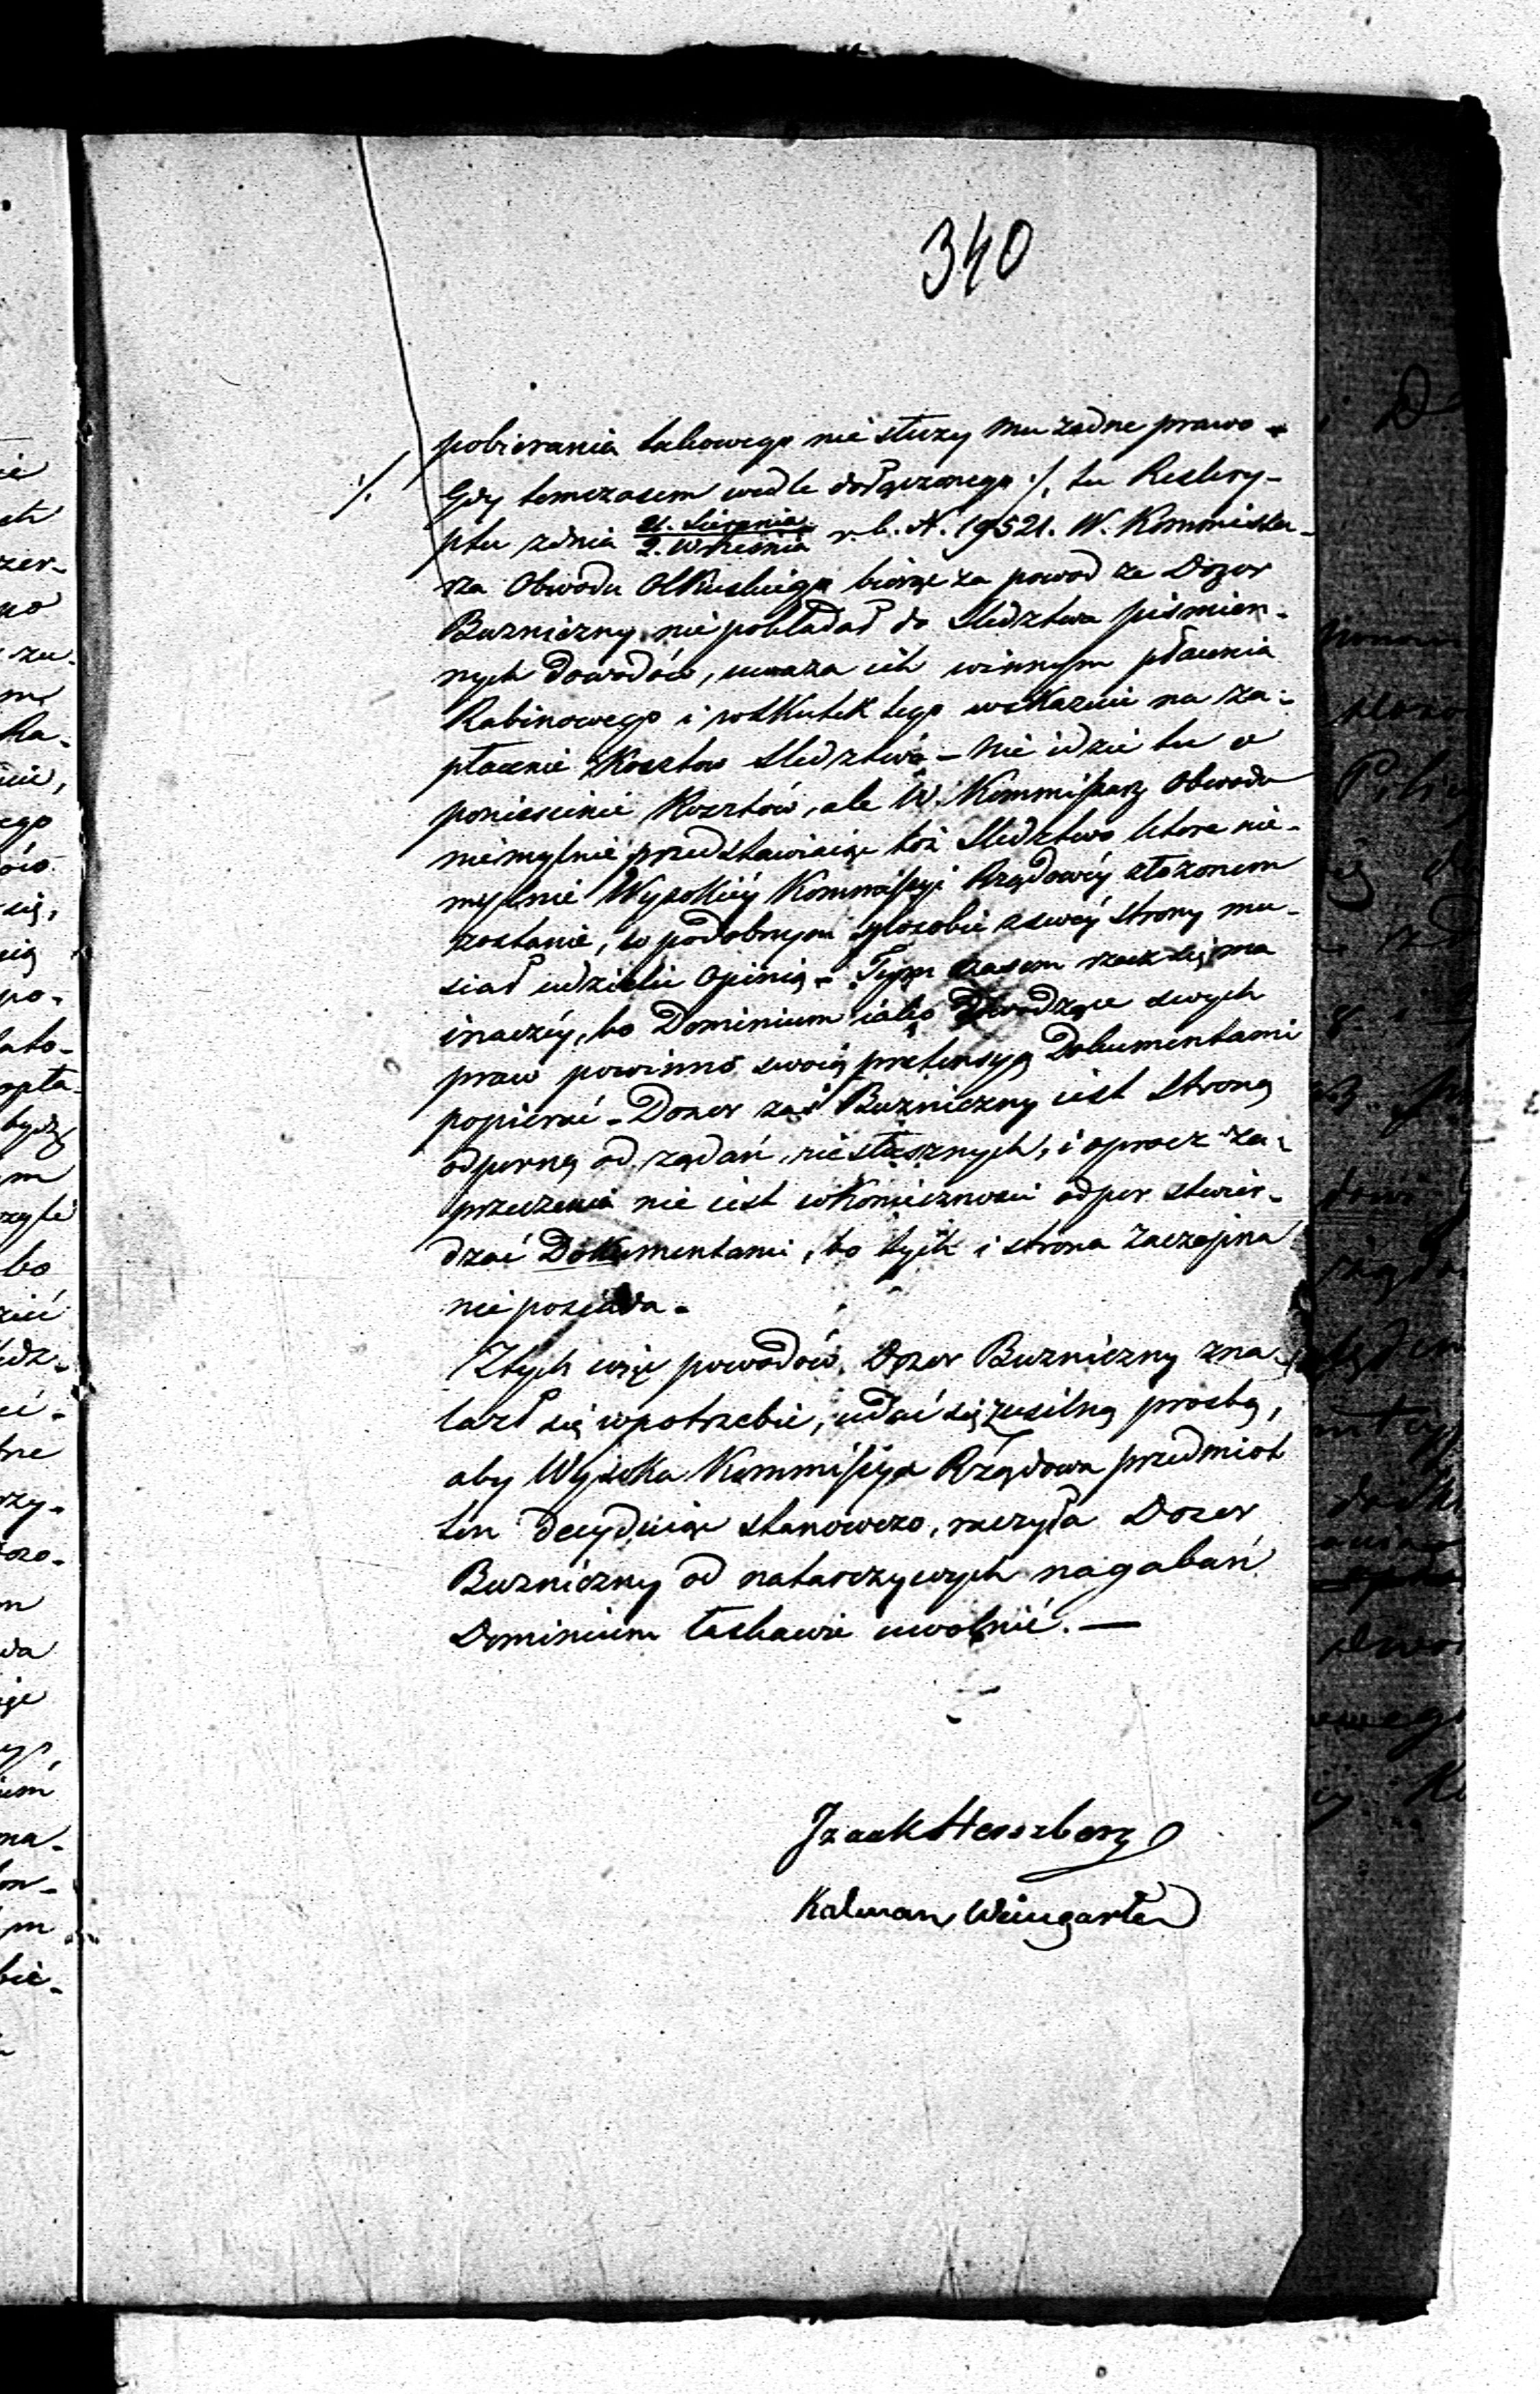 340
pobierania takowego nie służy mu żadne prawo –
·/. Gdy tymczasem wedle dołączonego ·/. tu Reskry-
ptu z dnia 21. Sierpnia / 2. Września r. b. N. 19521. W. Kommissa-
rza Obwodu Olkuskiego biorąc za powod że Dozor
Bużniczny nie pokładał do Sledztwa piśmien-
nych dowodów, uważa ich winnym płacenia
Rabinowego i wskutek tego wskazuie na za-
płacenie Kosztow Sledztwa – Nie idzie tu o
poniesienie Kosztów, ale W. Kommissarz Obwodu
niemylnie przedstawiaiąc toż Sledztwo które nie-
mylnie Wysokiéy Kommissyi Rządowéy złożonem
zostanie, w podobnym sposobie z swéy strony mu-
siał udzielić Opinią – Tym czasem rzecz się ma
inaczéy, bo Dominium iako dowodzące swych
praw powinno swoią pretensyą Dokumentami
popierać – Dozor zaś Bużniczny iest Stroną
odporną od żądań niesłusznych, i oprocz za-
przeczenia nie iest w Konieczności odpor stwier-
dzać Dokumentami, bo tych i strona zaczepna
nie posiada –
Z tych więc powodów Dozor Bużniczny zna-
lazł się w potrzebie, udać się z usilną proźbą,
aby Wysoka Kommissya Rządowa przedmiot
ten decyduiąc stanowczo, raczyła Dozor
Bużniczny od natarczywych nagabań
Dominium łaskawie uwolnić. —
Izaak Herszberg
Kalman Weingarten